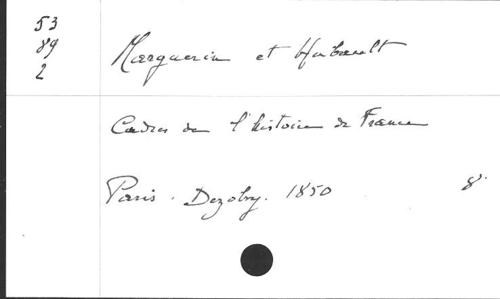 53
89
2
Marguerin et Hubault
Cadres de l'histoire de France
Paris. Dezobry. 1850 8°